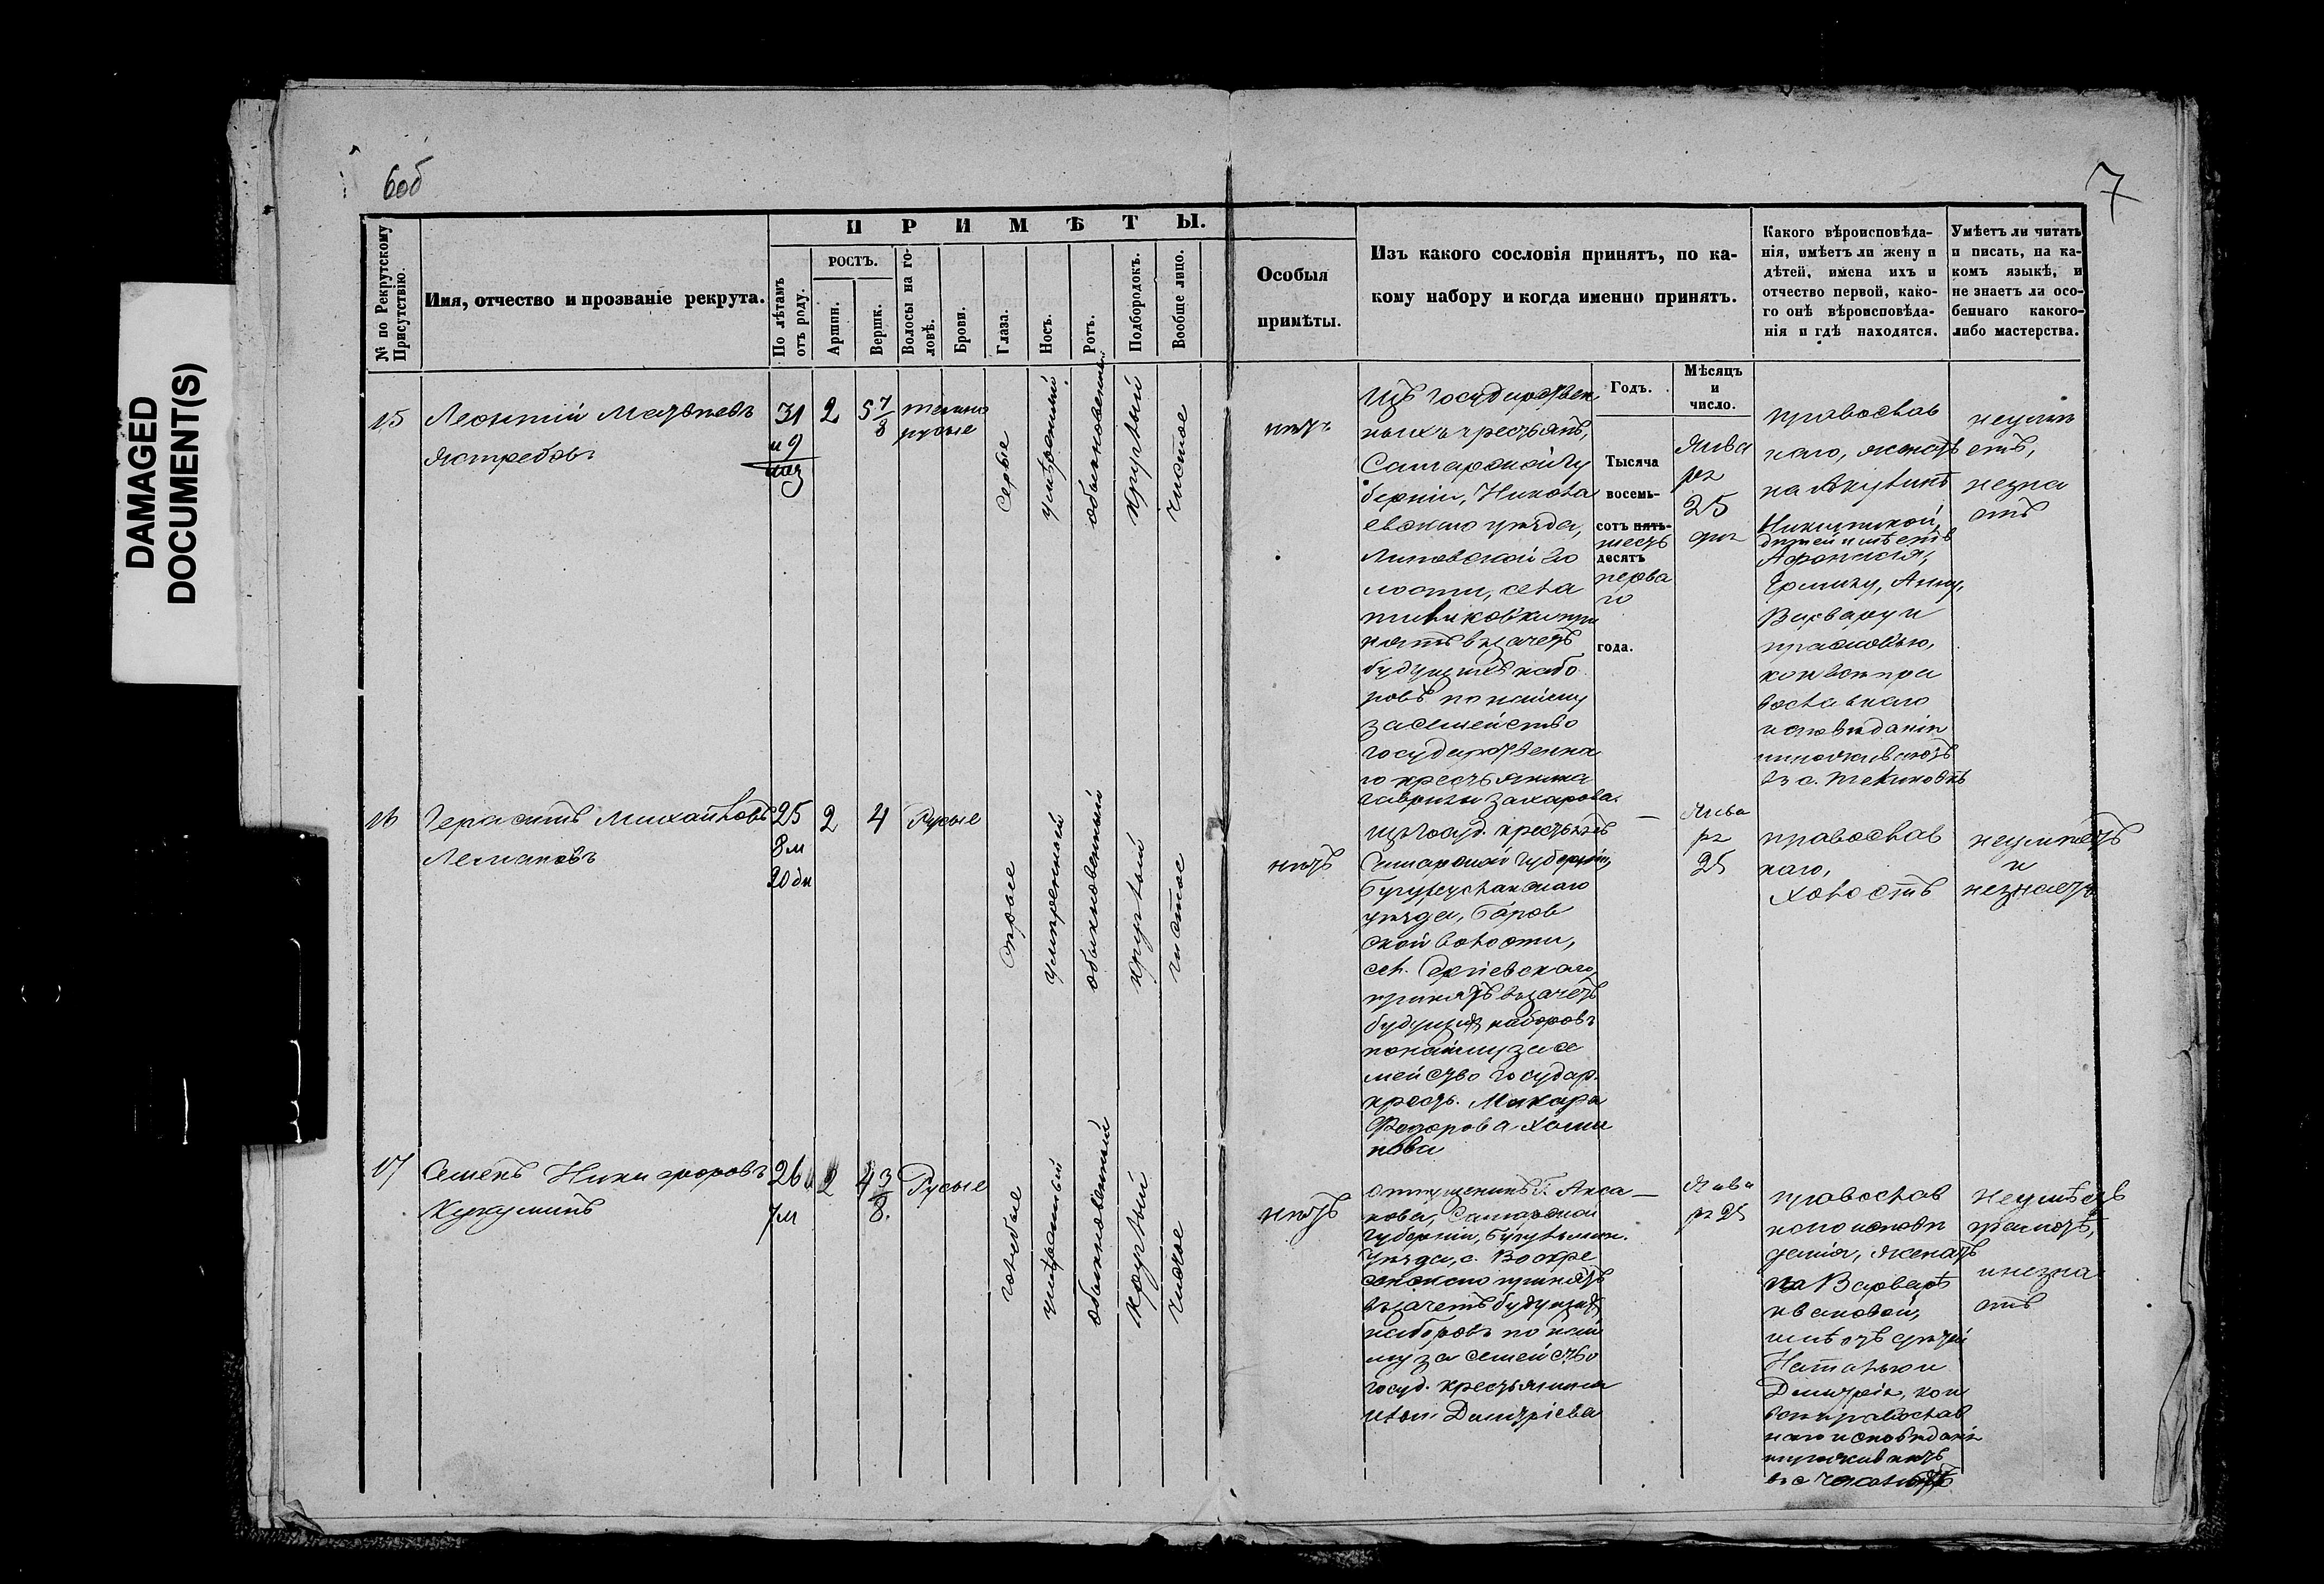 DAMAGED
DOCUMENT(S)
6об
7
№ по Рекрутскому
Присутствію.
Имя, отчество и прозваніе рекрута.
ПРИМѢТЫ.
По лѣтамъ
отъ роду.
РОСТЪ.
Аршин.
Вершк.
Волосы на го-
ловѣ.
Брови.
Глаза.
Носъ.
Ротъ.
Подбородокъ.
Вообще лицо.
Особыя
примѣты.
Изъ какого сословія принятъ, по ка-
кому набору и когда именно принятъ.
Какого вѣроисповѣда-
нія, имѣетъ ли жену и
дѣтей, имена ихъ и
отчество первой, како-
го онѣ вѣроисповѣда-
нія и гдѣ находятся.
Умѣетъ ли читать
и писать, на ка-
комъ языкѣ, и
не знаетъ ли осо-
беннаго какого-
либо мастерства.
Годъ.
Мѣсяцъ
и
число.
15
Леонтій Матвѣевъ
Ястребовъ
31
и 9
2
5 7/8
темно
русые
серые
умѣренный
обыкновенный
круглый
чистое
нѣтъ
Изъ государствен
ныхъ крестьянъ,
Самарской гу
берніи, Никола
евскаго уѣзда,
Липовской во
лости, села
при
нятъ въ зачетъ
будущихъ набо
ровъ по найму
за семейство
государственна
го крестьянина
Гаврилы Захарова.
Тысяча
восемь-
сотъ пять-
шесть
десятъ
перва
го
года.
Янва
ря
25
дня
православ
наго, женатъ
на
Никитиной,
дѣтей имѣетъ
Афанасія,
Анну,
Варвару и
Прасковью,
кои всѣ пра
вославнаго
исповѣданія
проживаютъ
въ с.
неумѣ
етъ,
незна
етъ
16
Герасимъ Михайловъ
25
8 м
20 дн
2
4
Русые
сѣрые
умѣренный
обыкновенный
круглый
чистое
нѣтъ
Изъ госуд. крестьянъ
Самарской губерніи,
Бугурусланскаго
уѣзда,
ской волости,
сел.
принятъ въ зачетъ
будущихъ наборовъ
по найму за се
мейство государ.
кресть. Макара
Федорова
—
Янва
ря
25
православ
наго,
холостъ
неумѣетъ
и
незнаетъ
17
Семенъ Никифоровъ
26
7 м
2
4 3/8.
Русые
голубые
умѣренный
обыкновенный
круглый
чистое
нѣтъ
Отпущеникъ Г. Акса
кова, Самарской
губерніи, Бугульмин.
уѣзда, с. Воскре
сенскаго принятъ
въ зачетъ будущихъ
наборовъ по най
му за семейство
госуд. крестьянина
Дмитріева
—
Янва
ря 25
православ
наго исповѣ
данія, женатъ
на Варварѣ
Ивановой,
имѣетъ дѣтей
Наталью и
Дмитрія, кои
всѣ православ
наго исповѣданія
проживаютъ
въ с.
Неумѣетъ
грамотѣ,
и незна
етъ